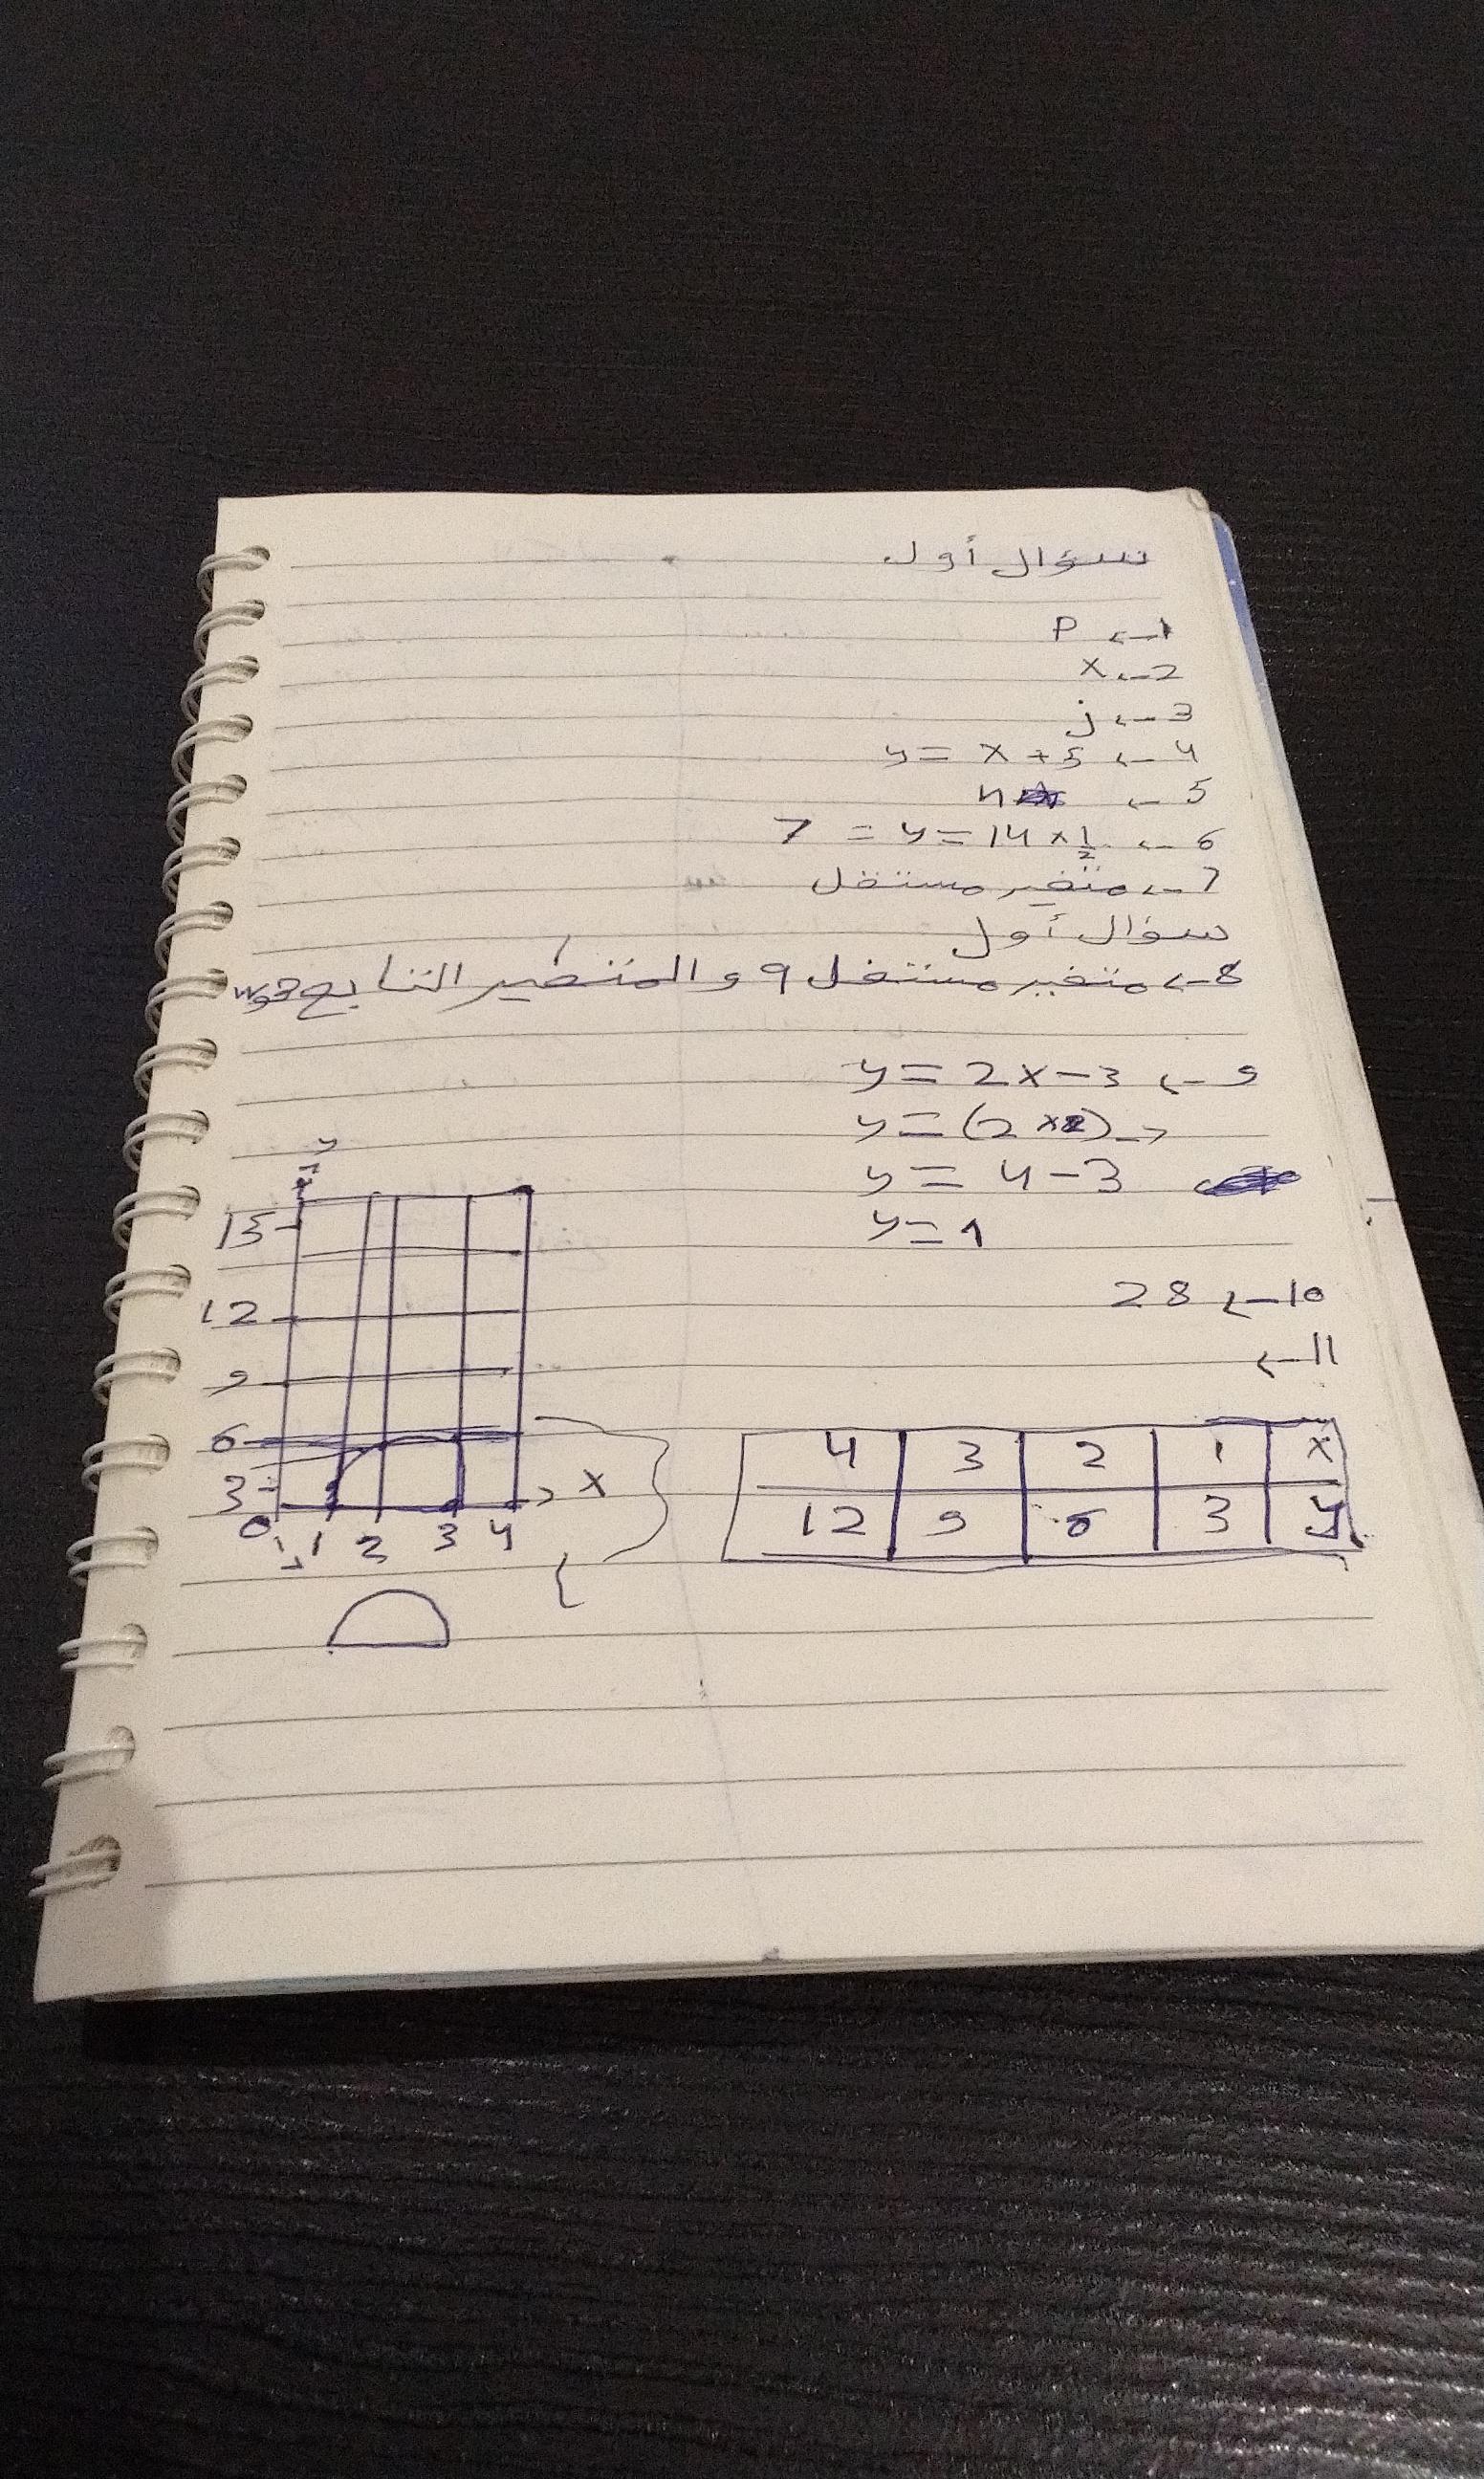 سؤال أول
1← P
2← x
3← j
4← y = x + 5
5← 4
6← y = 14 × 1/2 = 7
7← متغير مستقل
سؤال أول
8← متغير مستقل q و المتغير التابع هو w
9← y = 2x - 3
y = (2 × 2) -
y = 4 - 3
y = 1
10← 28
11←
x 1 2 3 4
y 3 6 9 12
y
15
12
9
6
3
0 1 2 3 4 x